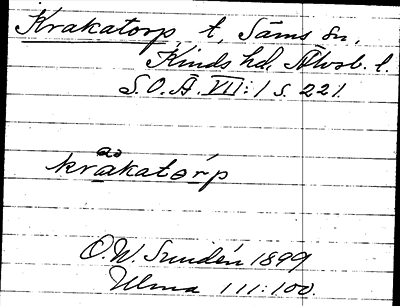 Krakatorp t, Säms sn,
Kinds hd, Älvsb. l.
S.O.Ä. VII:1 s. 221.
krakatórp
O.W. Sundén 1899
Ulma 111:100.